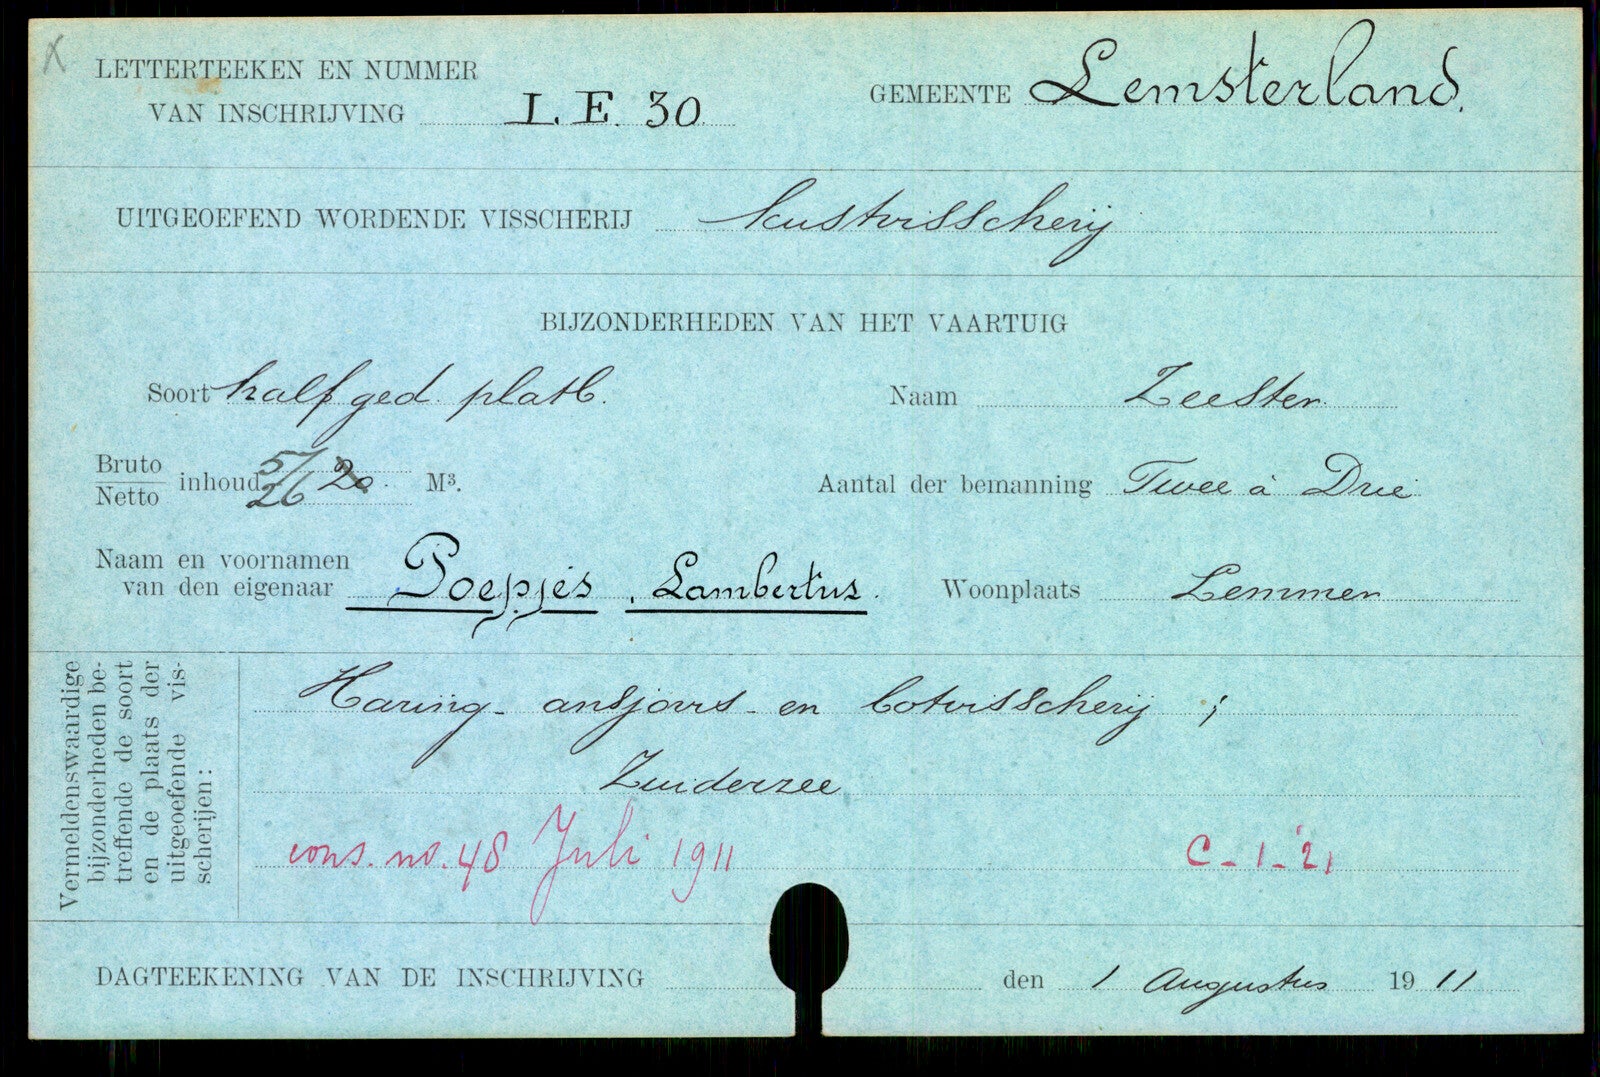 X
LETTERTEEKEN EN NUMMER
VAN INSCHRIJVING L.E. 30
GEMEENTE Lemsterland.
UITGEOEFEND WORDENDE VISSCHERIJ kustvisscherij
BIJZONDERHEDEN VAN HET VAARTUIG
Soort half ged. platb.
Naam Zeester
Bruto
Netto
inhoud 57 20. M³.
26
Aantal der bemanning Twee à Drie
Naam en voornamen
van den eigenaar Poepjes, Lambertus.
Woonplaats Lemmer
Vermeldenswaardige
bijzonderheden be-
treffende de soort
en de plaats der
uitgeoefende vis-
scherijen:
Haring- ansjovis- en botvisscherij ;
Zuiderzee
cons. no. 48 Juli 1911
C-1-21
DAGTEEKENING VAN DE INSCHRIJVING den 1 Augustus 1911